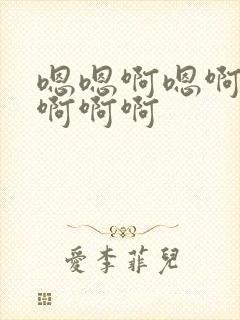 嗯嗯啊嗯啊
啊啊啊
愛李菲兒